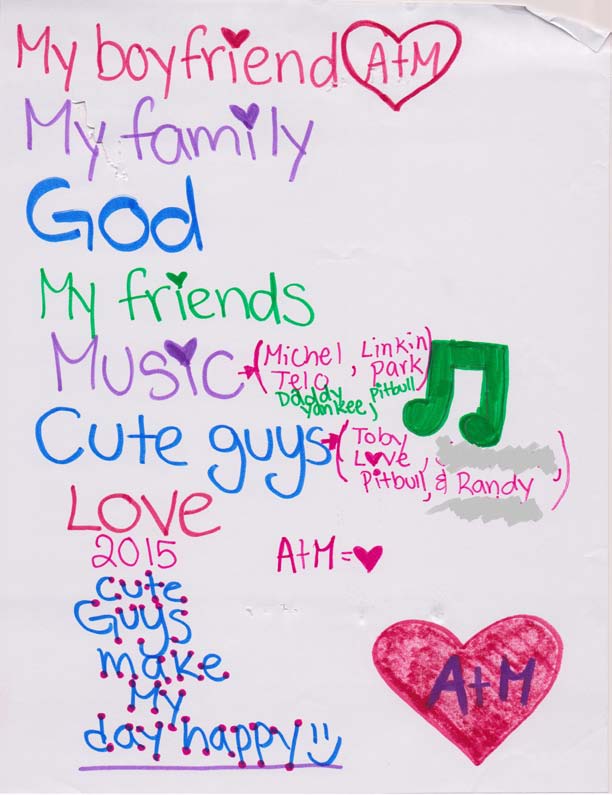 My boyfriend A+M
My family
God
My friends
Music → (Michel Telo, Linkin Park)
Daddy Yankee, Pitbull
Cute guys → (Toby Love, ,
Pitbull, & Randy )
LOVE
2015
A+M=♥
Cute
Guys
make
My
day happy!!
A+M